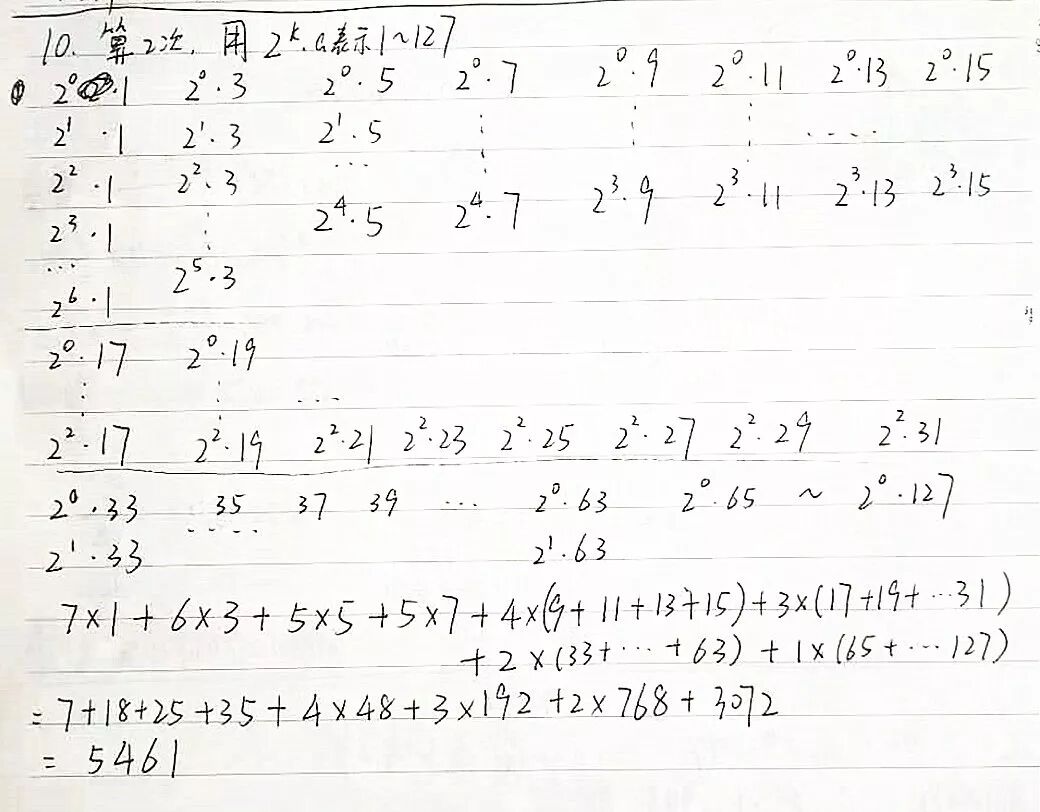 10. 算2次. 用 2^k·a表示1~127
① 2^0·1 2^0·3 2^0·5 2^0·7 2^0·9 2^0·11 2^0·13 2^0·15
2^1·1 2^1·3 2^1·5 ⋮ ⋮ ⋮ ····
2^2·1 2^2·3 ··· 2^4·5 2^4·7 2^3·9 2^3·11 2^3·13 2^3·15
2^3·1 ⋮
··· 2^5·3
2^6·1
2^0·17 2^0·19
⋮ ⋮ ···
2^2·17 2^2·19 2^2·21 2^2·23 2^2·25 2^2·27 2^2·29 2^2·31
2^0·33 35 37 39 ··· 2^0·63 2^0·65 ~ 2^0·127
2^1·33 ····· 2^1·63
7×1+6×3+5×5+5×7+4×(9+11+13+15)+3×(17+19+···31)
+2×(33+···+63)+1×(65+···127)
=7+18+25+35+4×48+3×192+2×768+3072
= 5461